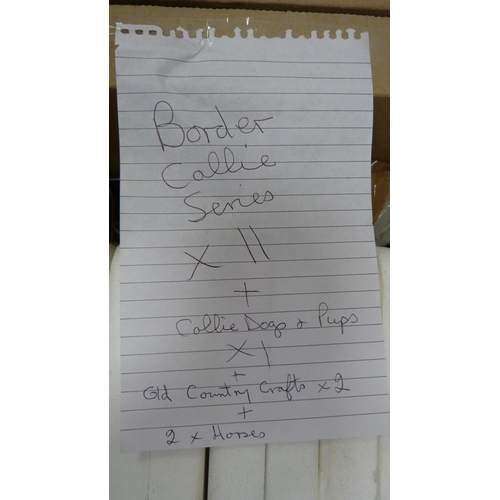 Border
Collie
Series
x 11
+
Collie Dogs & Pups
x 1
+
Old Country Crafts x 2
+
2 x Horses